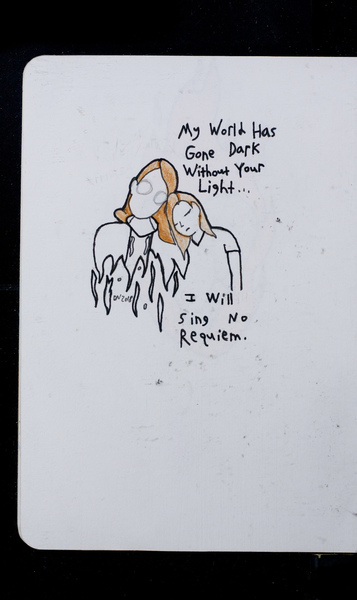 My World Has
Gone Dark
Without Your
Light...
I Will
Sing No
Requiem.